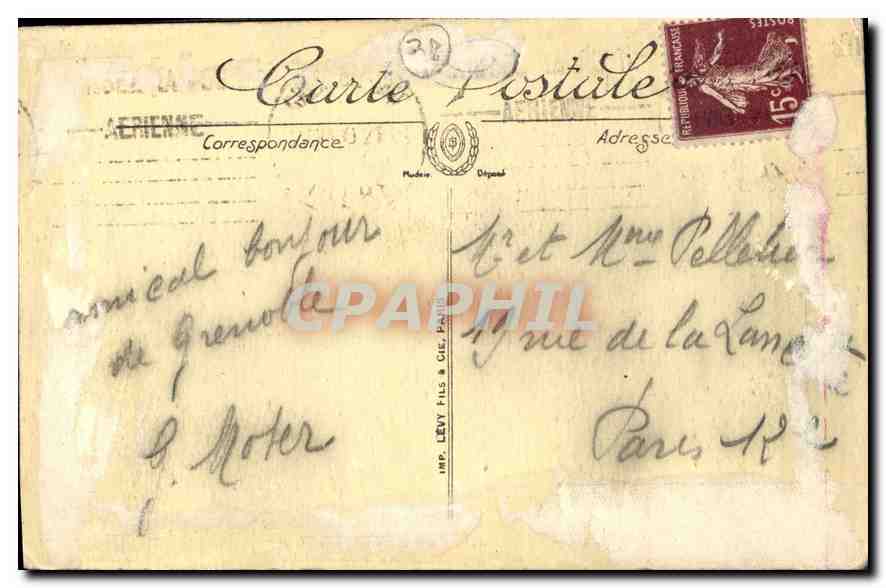 38
Carte Postale
AERIENNE
Correspondance
Adresse
Modèle Déposé
POSTES
REPUBLIQUE FRANÇAISE
15c
amical bonjour
de Grenoble
G. Moter
IMP. LÉVY FILS & CIE, PARIS
CPAPHIL
Mr et Mme
19 rue de la
Paris 12e